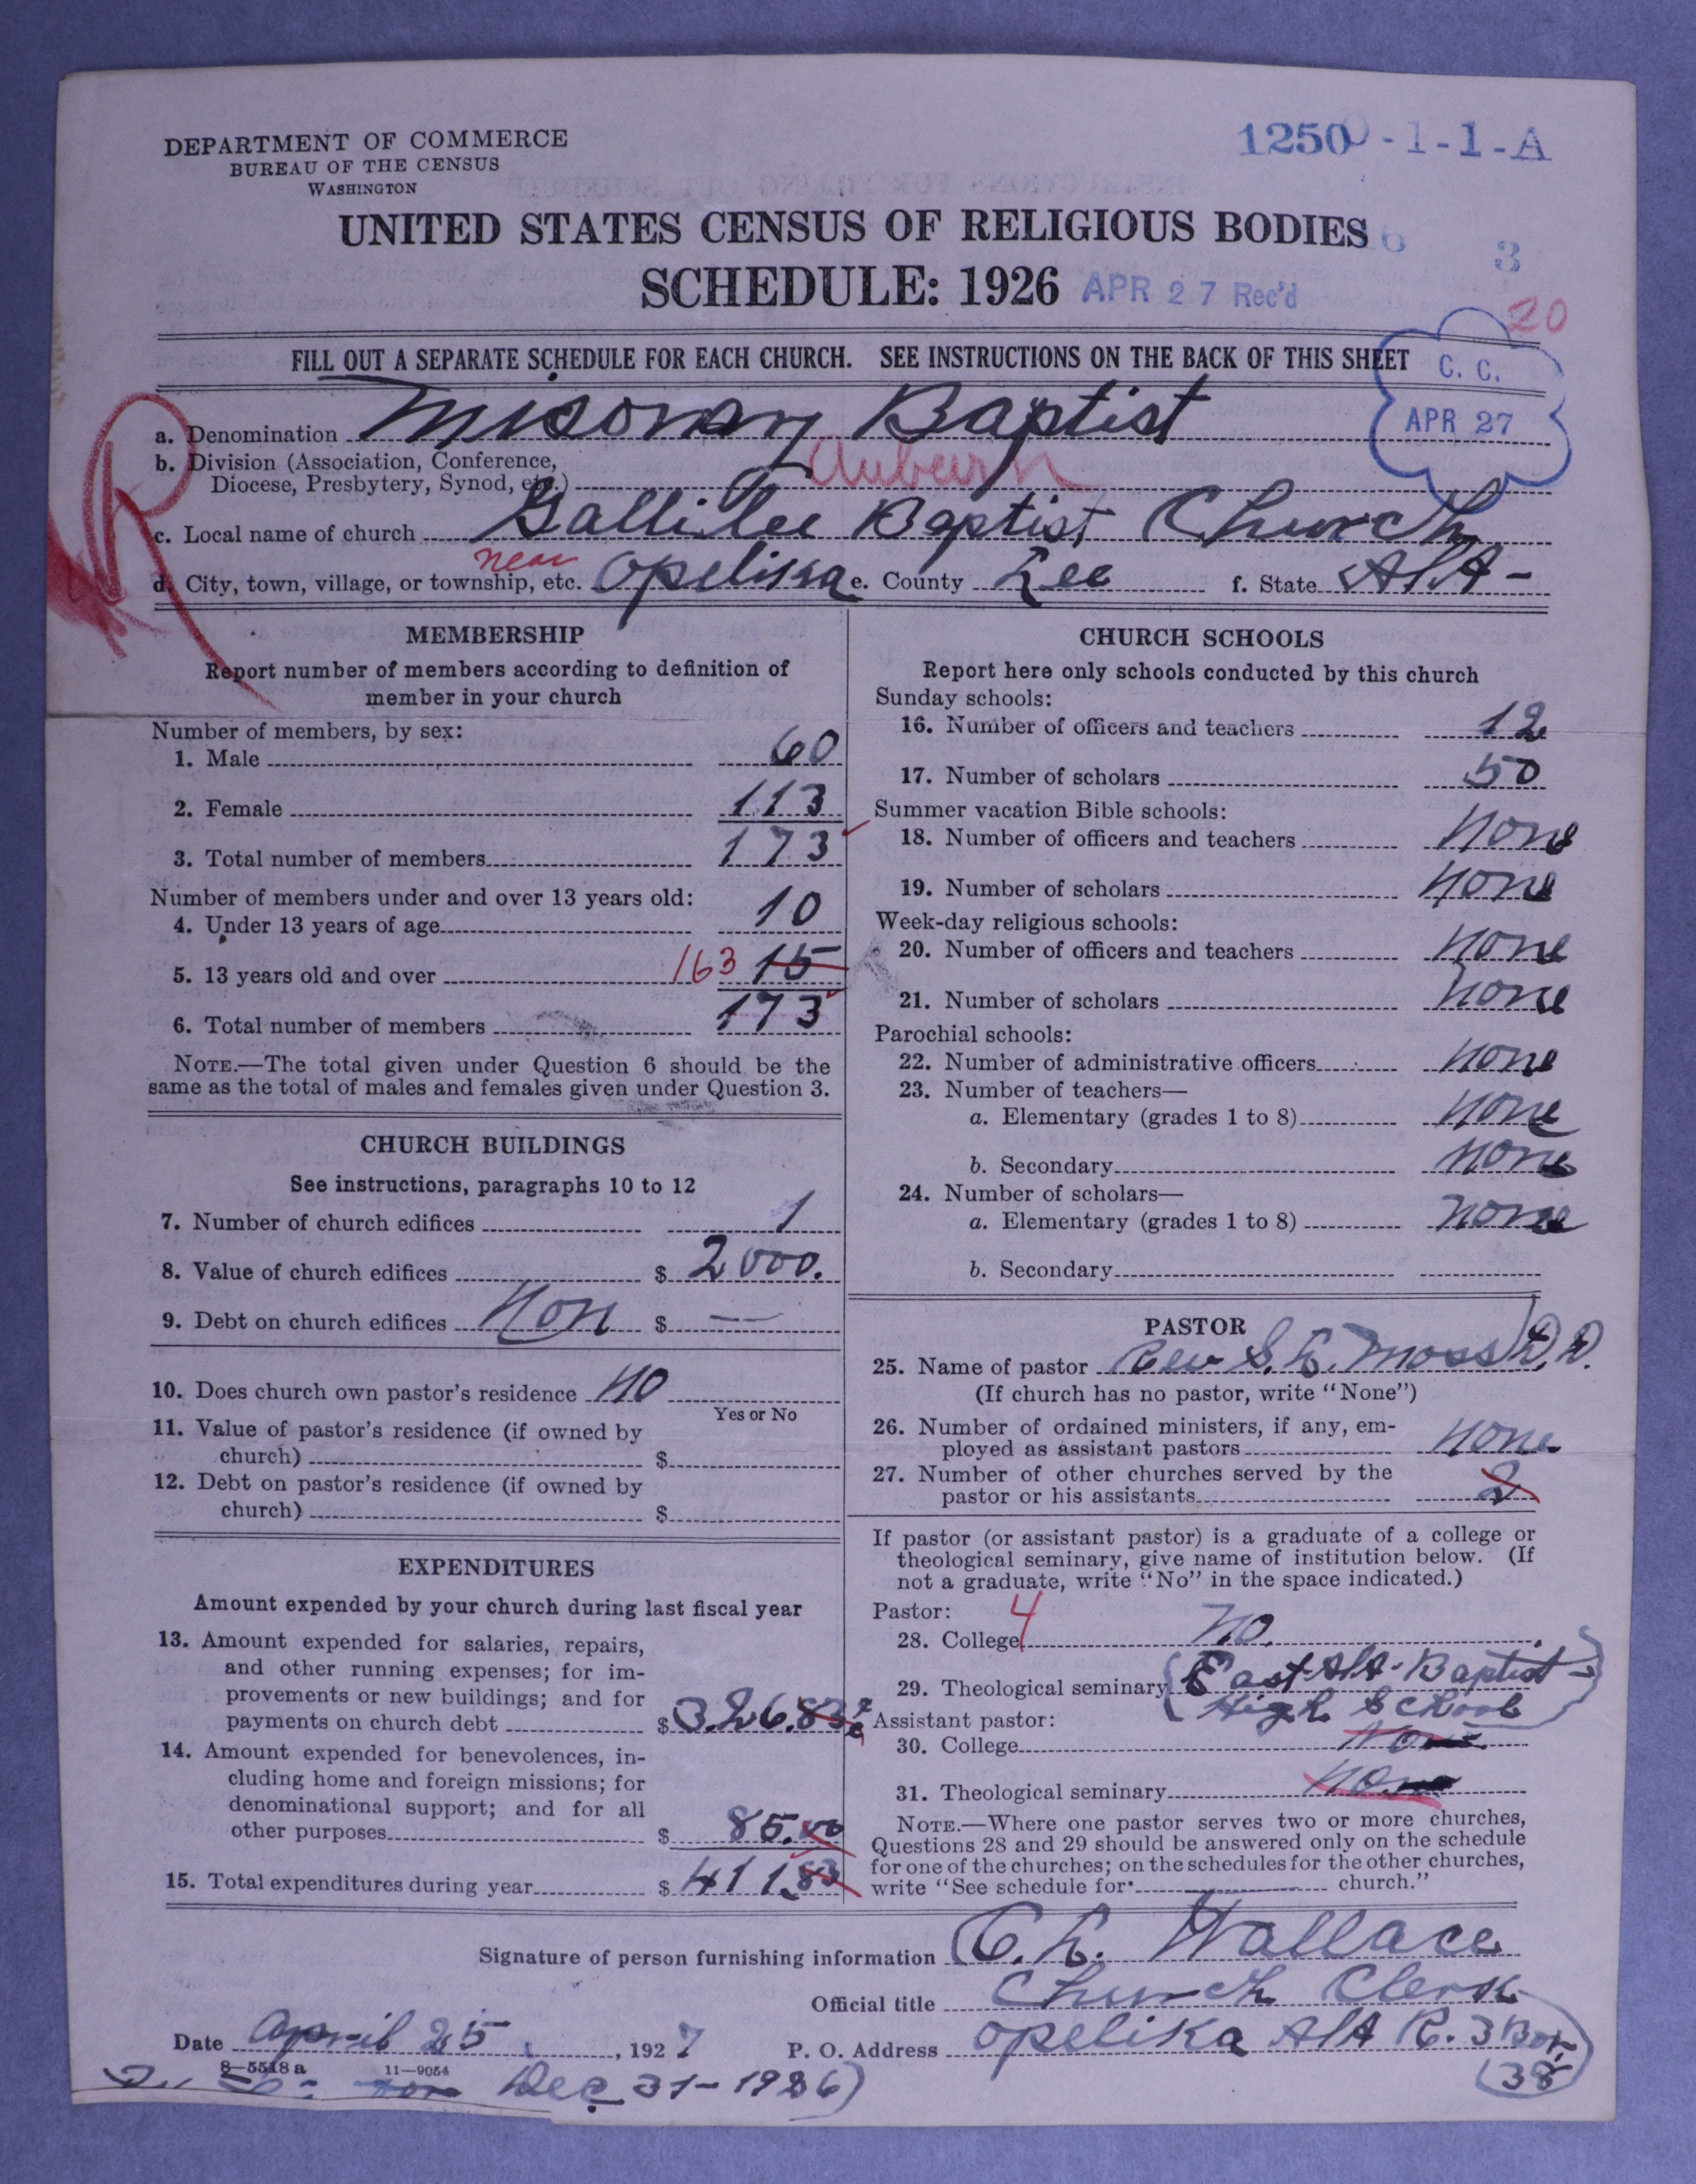 DEPARTMENT OF COMMERCE
BUREAU OF THE CENSUS
WASHINGTON
1250 0-1-1-A
UNITED STATES CENSUS OF RELIGIOUS BODIES
SCHEDULE: 1926 APR 27 Rec'd
3
20
FILL OUT A SEPARATE SCHEDULE FOR EACH CHURCH. SEE INSTRUCTIONS ON THE BACK OF THIS SHEET
C. C.
APR 27
a. Denomination Misonary Baptist
b. Division (Association, Conference,
Diocese, Presbytery, Synod, etc.) Auburn
c. Local name of church Gallilee Baptist Church
near
d. City, town, village, or township, etc. Opelika e. County Lee f. State AlA-
MEMBERSHIP
Report number of members according to definition of
member in your church
Number of members, by sex:
1. Male 60
2. Female 113
3. Total number of members 173
Number of members under and over 13 years old:
4. Under 13 years of age 10
5. 13 years old and over 163 15
6. Total number of members 173
NOTE.—The total given under Question 6 should be the
same as the total of males and females given under Question 3.
CHURCH BUILDINGS
See instructions, paragraphs 10 to 12
7. Number of church edifices 1
8. Value of church edifices $ 2000.
9. Debt on church edifices Non $ —
10. Does church own pastor's residence no
Yes or No
11. Value of pastor's residence (if owned by
church) $
12. Debt on pastor's residence (if owned by
church) $
EXPENDITURES
Amount expended by your church during last fiscal year
13. Amount expended for salaries, repairs,
and other running expenses; for im-
provements or new buildings; and for
payments on church debt $ 326.83
14. Amount expended for benevolences, in-
cluding home and foreign missions; for
denominational support; and for all
other purposes $ 85.00
15. Total expenditures during year $ 411.83
CHURCH SCHOOLS
Report here only schools conducted by this church
Sunday schools:
16. Number of officers and teachers 12
17. Number of scholars 50
Summer vacation Bible schools:
18. Number of officers and teachers none
19. Number of scholars none
Week-day religious schools:
20. Number of officers and teachers none
21. Number of scholars none
Parochial schools:
22. Number of administrative officers none
23. Number of teachers—
a. Elementary (grades 1 to 8) none
b. Secondary none
24. Number of scholars—
a. Elementary (grades 1 to 8) none
b. Secondary
PASTOR
25. Name of pastor Rev S. L. Moss D. D.
(If church has no pastor, write "None")
26. Number of ordained ministers, if any, em-
ployed as assistant pastors none
27. Number of other churches served by the
pastor or his assistants 2
If pastor (or assistant pastor) is a graduate of a college or
theological seminary, give name of institution below. (If
not a graduate, write "No" in the space indicated.)
Pastor: 4
28. College no.
29. Theological seminary (East AlA. Baptist
High School)
Assistant pastor:
30. College None
31. Theological seminary None
NOTE.—Where one pastor serves two or more churches,
Questions 28 and 29 should be answered only on the schedule
for one of the churches; on the schedules for the other churches,
write "See schedule for church."
Signature of person furnishing information C. L. Wallace
Official title Church Clerk
Date April 25, 1927 P. O. Address Opelika AlA R. 3 Box
(38)
8—5518 a 11—9054
Dec 31-1926)